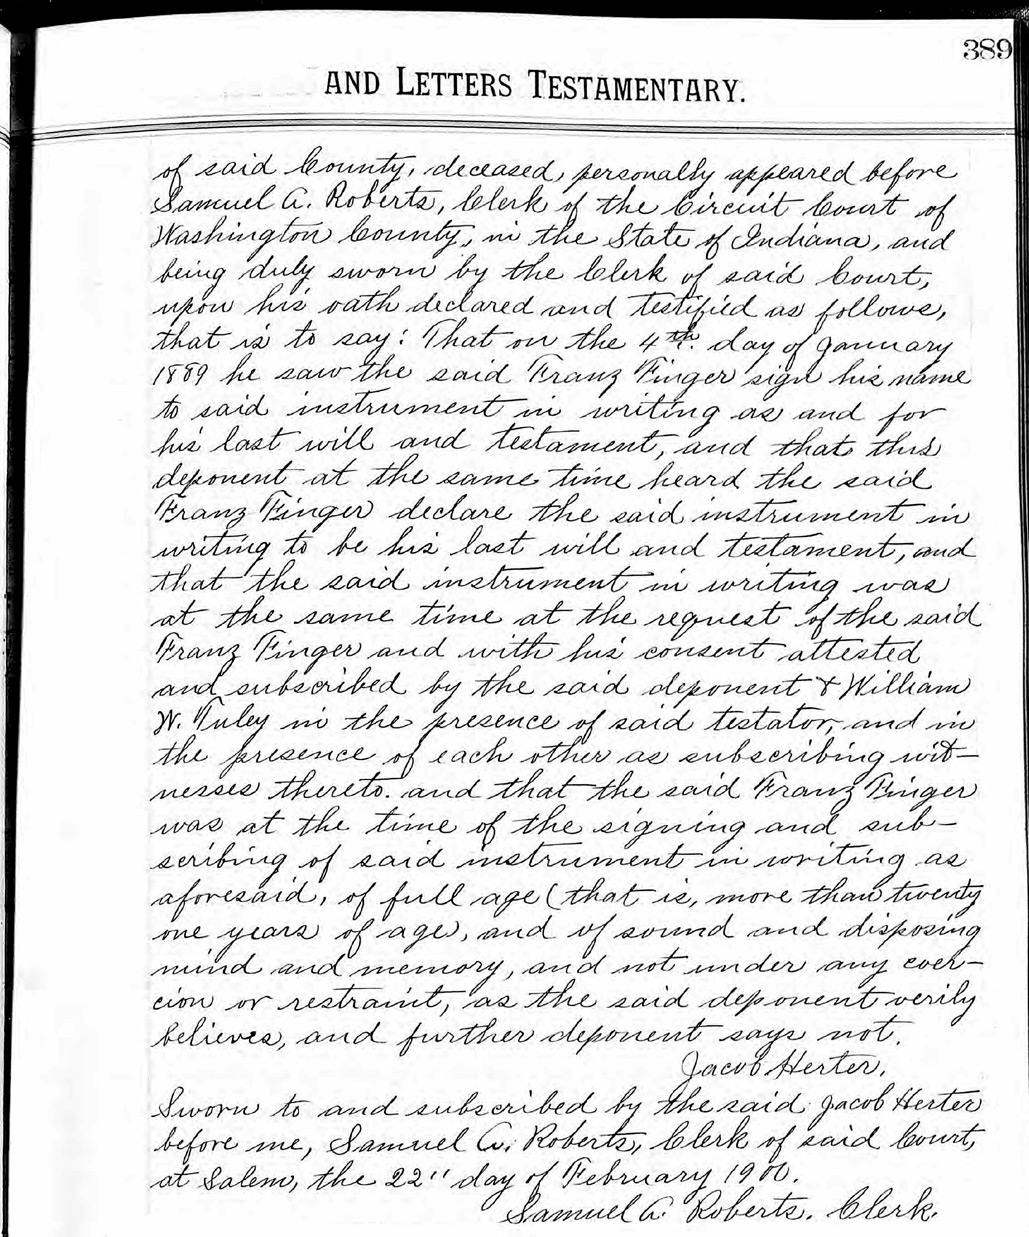 389
AND LETTERS TESTAMENTARY.
of said County, deceased, personally appeared before
Samuel A. Roberts, Clerk of the Circuit Court of
Washington County, in the State of Indiana, and
being duly sworn by the Clerk of said Court,
upon his oath declared and testified as follows,
that is to say: That on the 4th. day of January
1889 he saw the said Franz Finger sign his name
to said instrument in writing as and for
his last will and testament, and that this
deponent at the same time heard the said
Franz Finger declare the said instrument in
writing to be his last will and testament, and
that the said instrument in writing was
at the same time at the request of the said
Franz Finger and with his consent attested
and subscribed by the said deponent & William
W. Tuley in the presence of said testator, and in
the presence of each other as subscribing wit-
nesses thereto. and that the said Franz Finger
was at the time of the signing and sub-
scribing of said instrument in writing as
aforesaid, of full age (that is, more than twenty
one years of age), and of sound and disposing
mind and memory, and not under any coer-
cion or restraint, as the said deponent verily
believes, and further deponent says not.
Jacob Herter.
Sworn to and subscribed by the said Jacob Herter
before me, Samuel A. Roberts, Clerk of said Court,
at Salem, the 22" day of February 1900.
Samuel A. Roberts. Clerk.